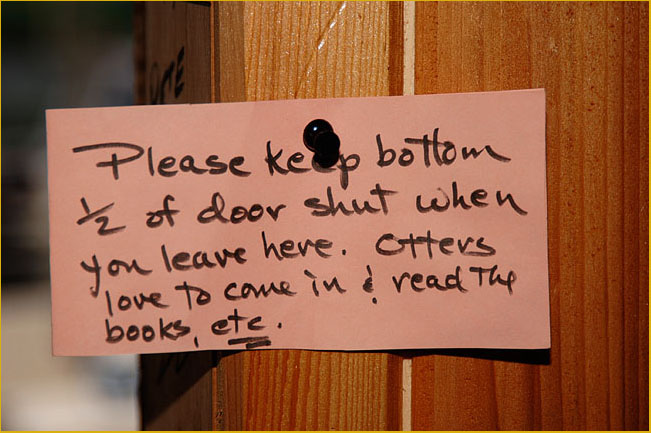 Please keep bottom
1/2 of door shut when
you leave here. Otters
love to come in & read The
books, etc.